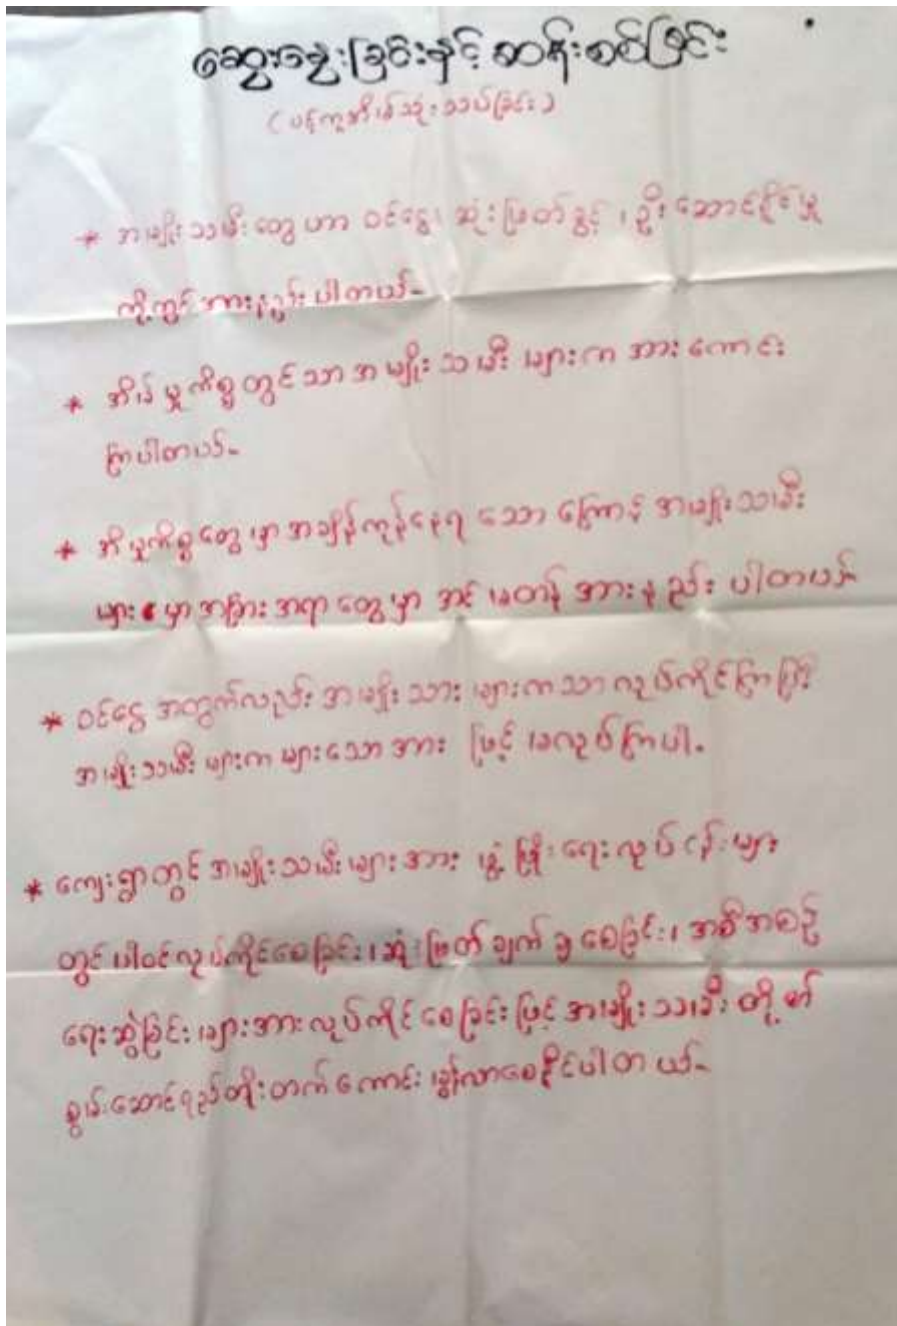 ဆွေးနွေးခြင်းနှင့် ဆန်းစစ်ခြင်း
(ပင့်ကူအိမ်သုံးသပ်ခြင်း)
* အမျိုးသမီးတွေဟာ ဝင်ငွေ၊ ဆုံးဖြတ်ခွင့်၊ ဦးဆောင်နိုင်မှု
တို့တွင် အားနည်းပါတယ်-
* အိမ်မှုကိစ္စတွင်သာ အမျိုးသမီးများက အားကောင်း
ကြပါတယ်-
* အိမှုကိစ္စတွေမှာ အချိန်ကုန်နေရသောကြောင့် အမျိုးသမီး
များမှာ အခြားအရာတွေမှာ အင်မတန် အားနည်းပါတယ်
* ဝင်ငွေအတွက်လည်း အမျိုးသားများကသာ လုပ်ကိုင်ကြပြီး
အမျိုးသမီးများက များသောအားဖြင့် မလုပ်ကြပါ-
* ကျေးရွာတွင် အမျိုးသမီးများအား ဖွံ့ဖြိုးရေးလုပ်ငန်းများ
တွင်ပါဝင်လုပ်ကိုင်စေခြင်း၊ ဆုံးဖြတ်ချက်ချစေခြင်း၊ အစီအစဉ်
ရေးဆွဲခြင်းများအား လုပ်ကိုင်စေခြင်းဖြင့် အမျိုးသမီးတို့၏
စွမ်းဆောင်ရည်တိုးတက်ကောင်းမွန်လာစေနိုင်ပါတယ်-